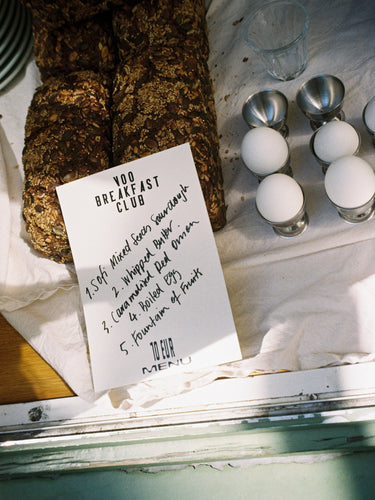 VOO
BREAKFAST
CLUB
1. Sofi Mixed Seeds Sourdough
2. Whipped Butter
3. Caramelised Red Onion
4. Boiled Egg
5. Fountain of Fruits
10 EUR
MENU